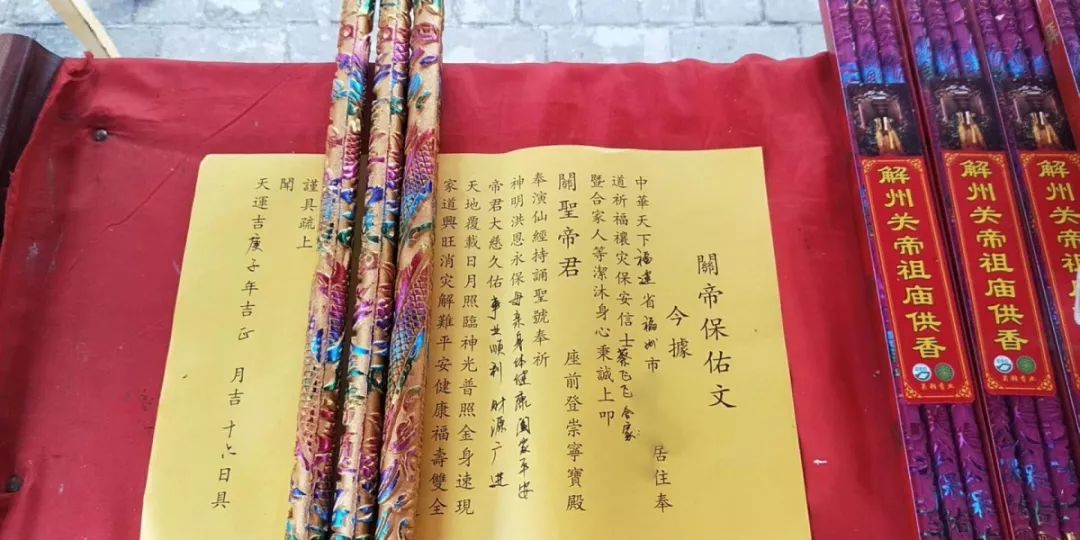 關帝保佑文
今據
中華天下福建省福州市 居住奉
道祈福禳灾保安信士蔡飞飞合家
暨合家人等潔沐身心秉誠上叩
關聖帝君 座前登崇寧寶殿
奉演仙經持誦聖號奉祈
神明洪恩永保母亲身体健康阖家平安
帝君大慈久佑事业顺利 财源广进
天地覆載日月照臨神光普照金身速現
家道興旺消灾解難平安健康福壽雙全
謹具疏上
聞
天運吉庚子年吉正 月吉十六日具
解州关帝祖庙供香
解州关帝祖庙供香
解州关帝祖庙